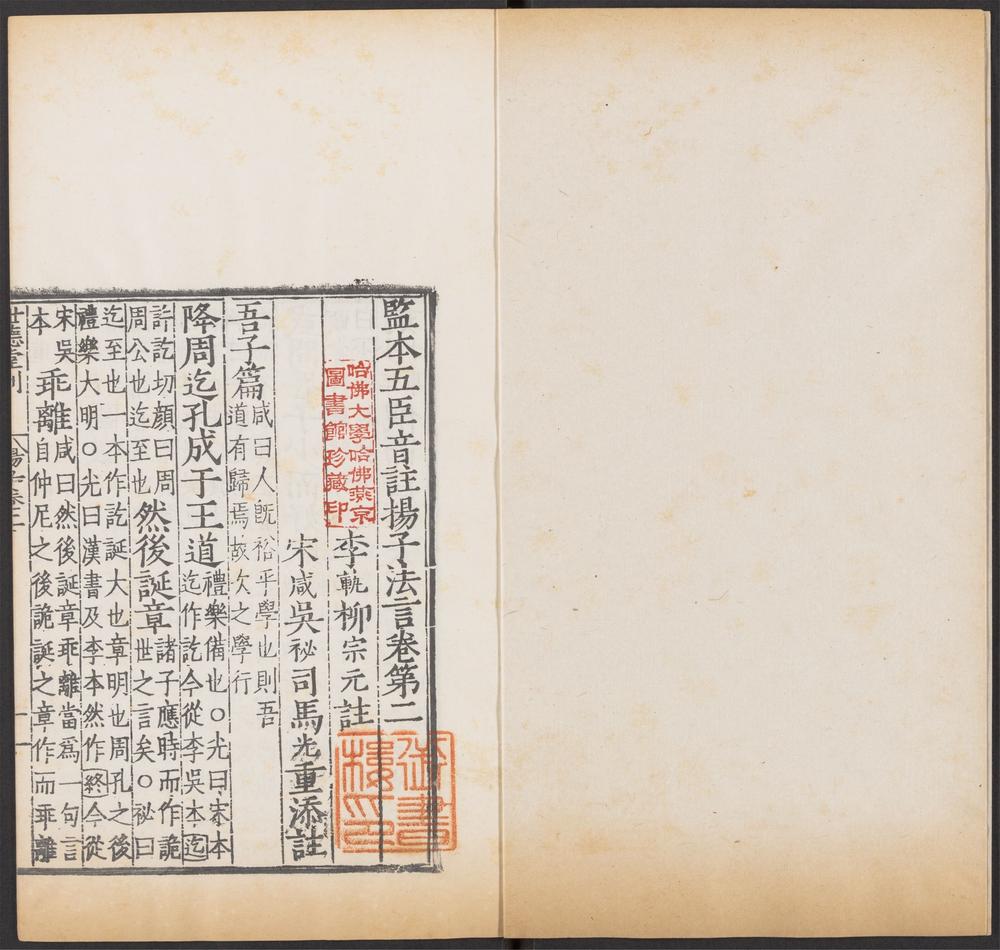 監本五臣音註揚子法言卷第二
李軌柳宗元註
宋咸吳祕司馬光重添註
吾子篇咸曰人旣裕乎學也則吾道有歸焉故次之學行
降周迄孔成于王道禮樂備也○光曰宋本迄作訖今從李吳本迄
許訖切顔曰周周公也迄至也然後誕章諸子應時而作詭世之言矣○祕曰
迄至也一本作訖誕大也章明也周孔之後禮樂大明○光曰漢書及李本然作終今從
宋吳本乖離咸曰然後誕章乖離當爲一句言自仲尼之後詭誕之章作而乖離
世德堂刊
哈佛大學哈佛燕京
圖書館珍藏印
御書
樓印